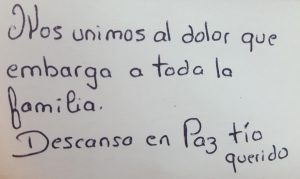 Nos unimos al dolor que
embarga a toda la
familia.
Descanso en Paz tío
querido